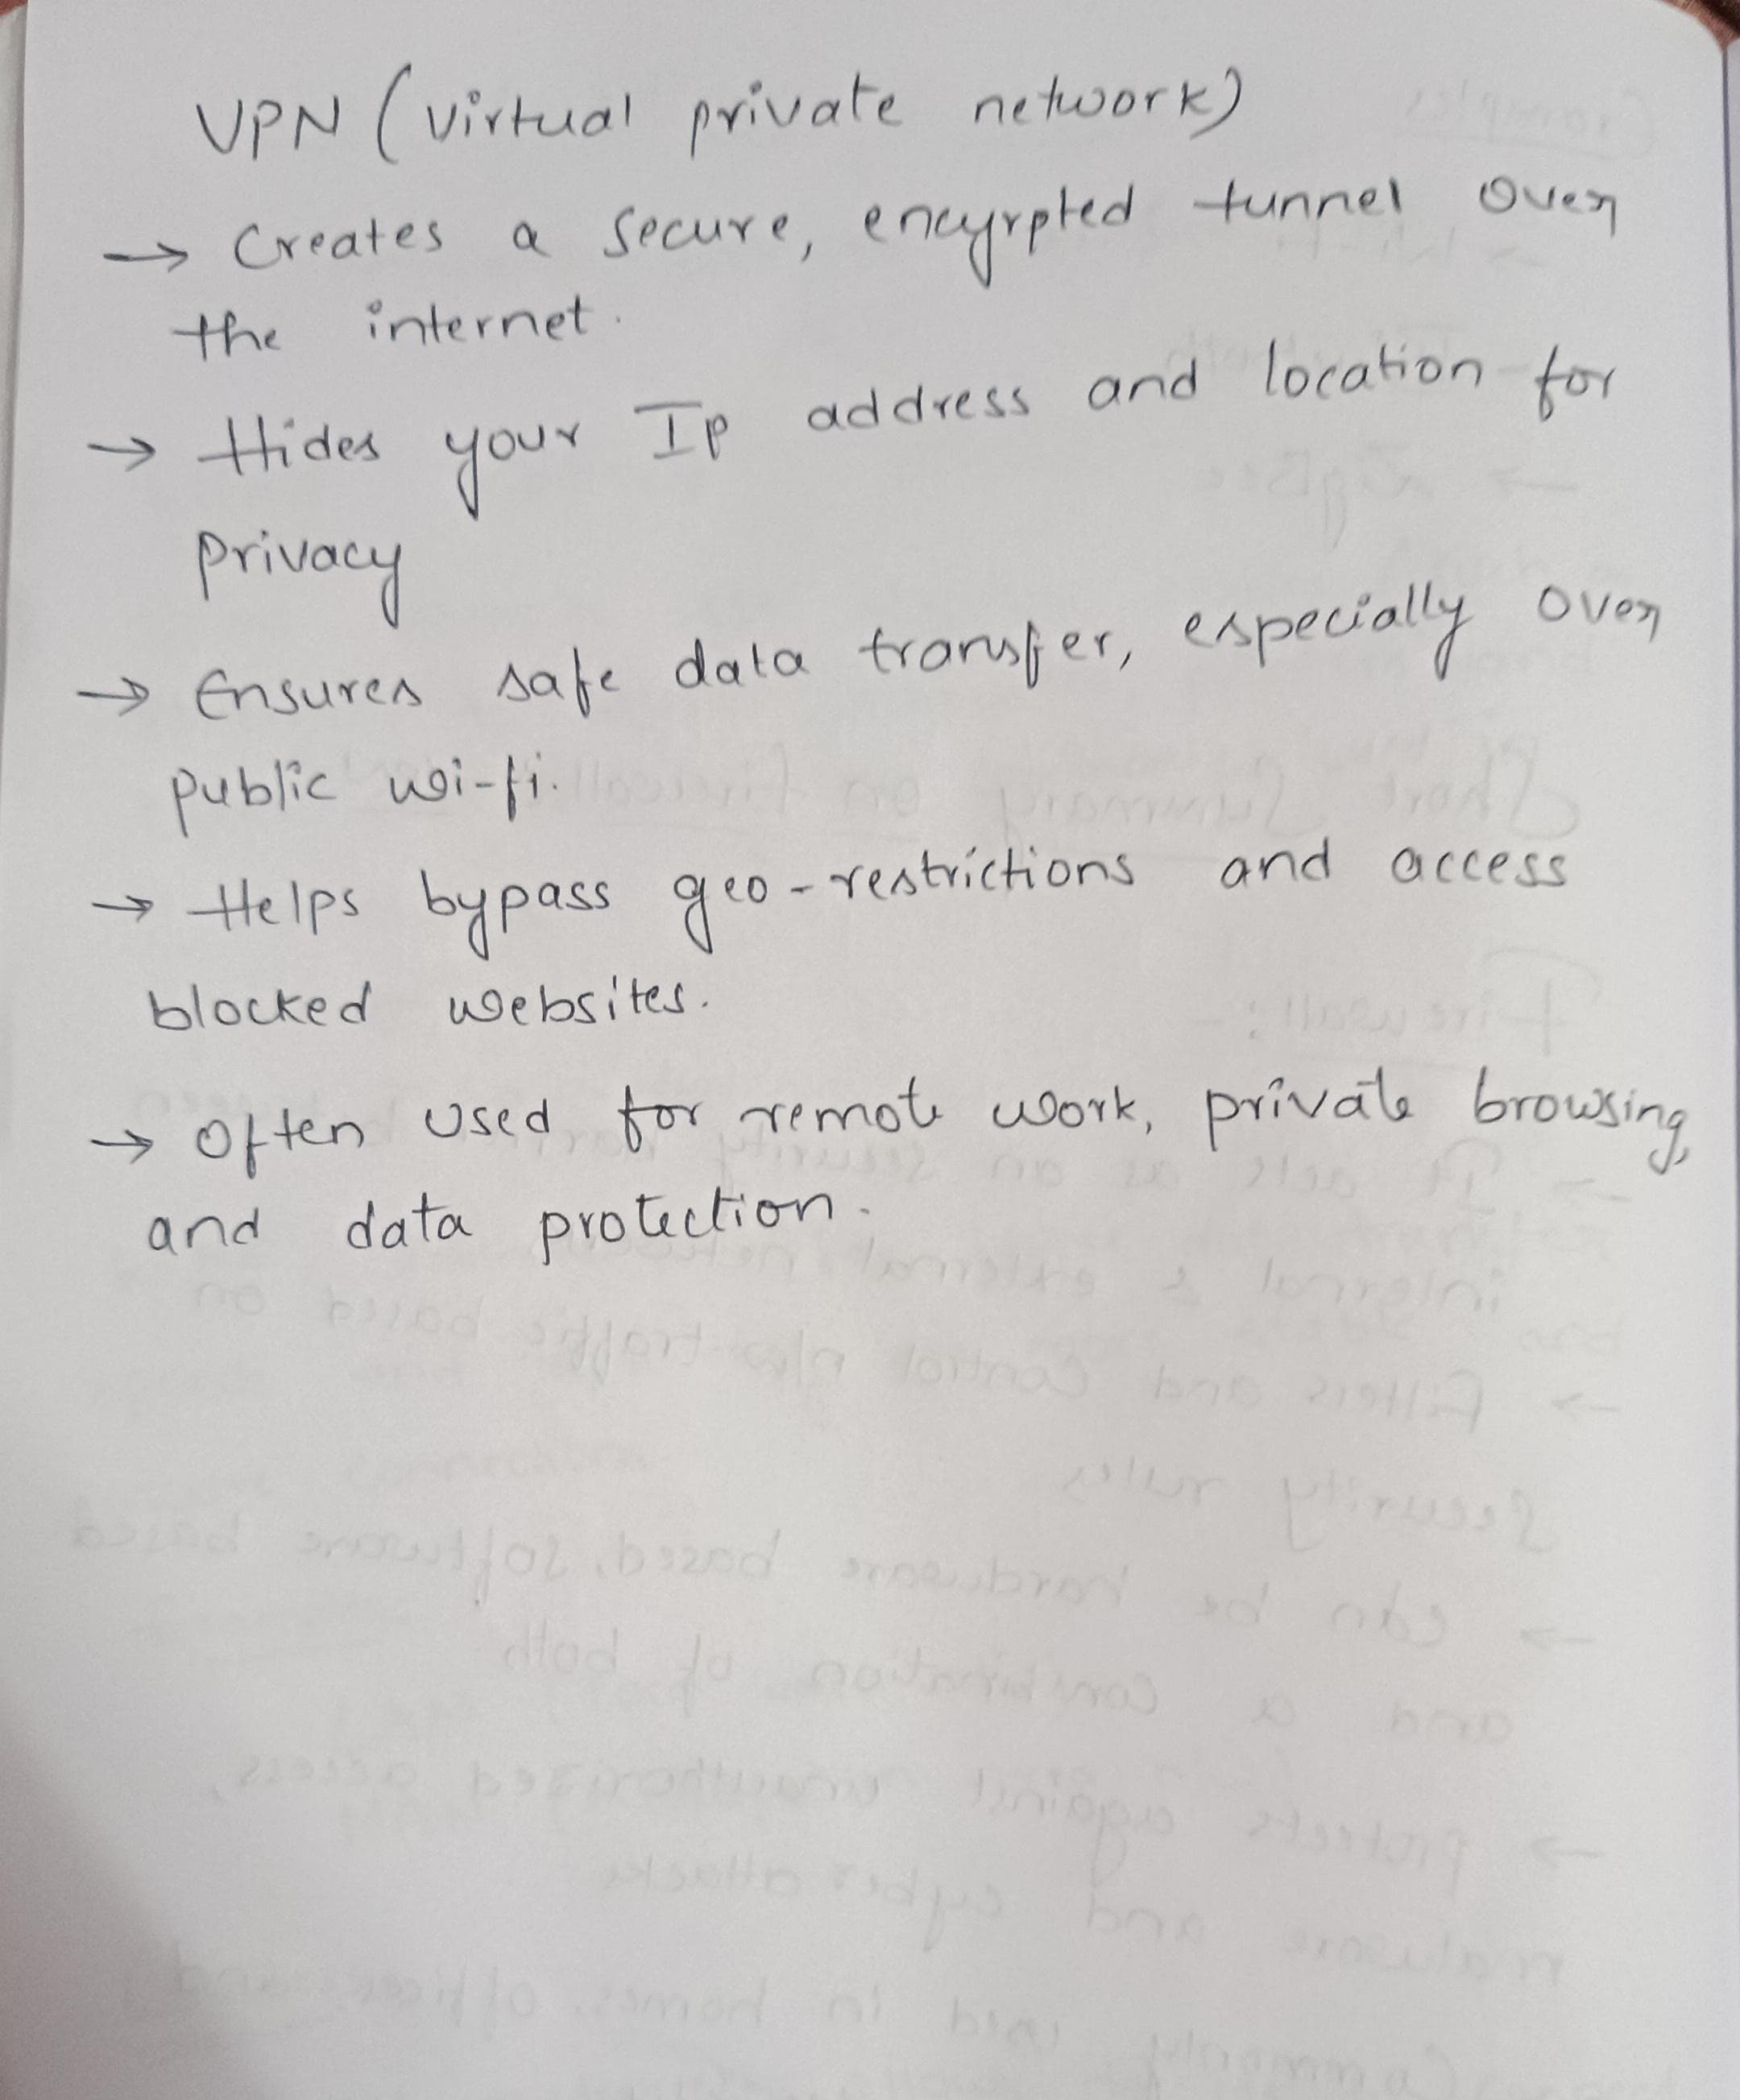 VPN (virtual private network)
→ Creates a secure, encyrpted tunnel over
the internet.
→ Hides your Ip address and location for
privacy
→ Ensures safe data transfer, especially over
public wi-fi.
→ Helps bypass geo-restrictions and access
blocked websites.
→ Often used for remote work, private browsing,
and data protection.